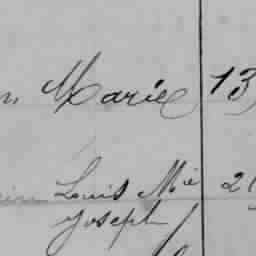 Marie 13
Louis Mie 2
Joseph